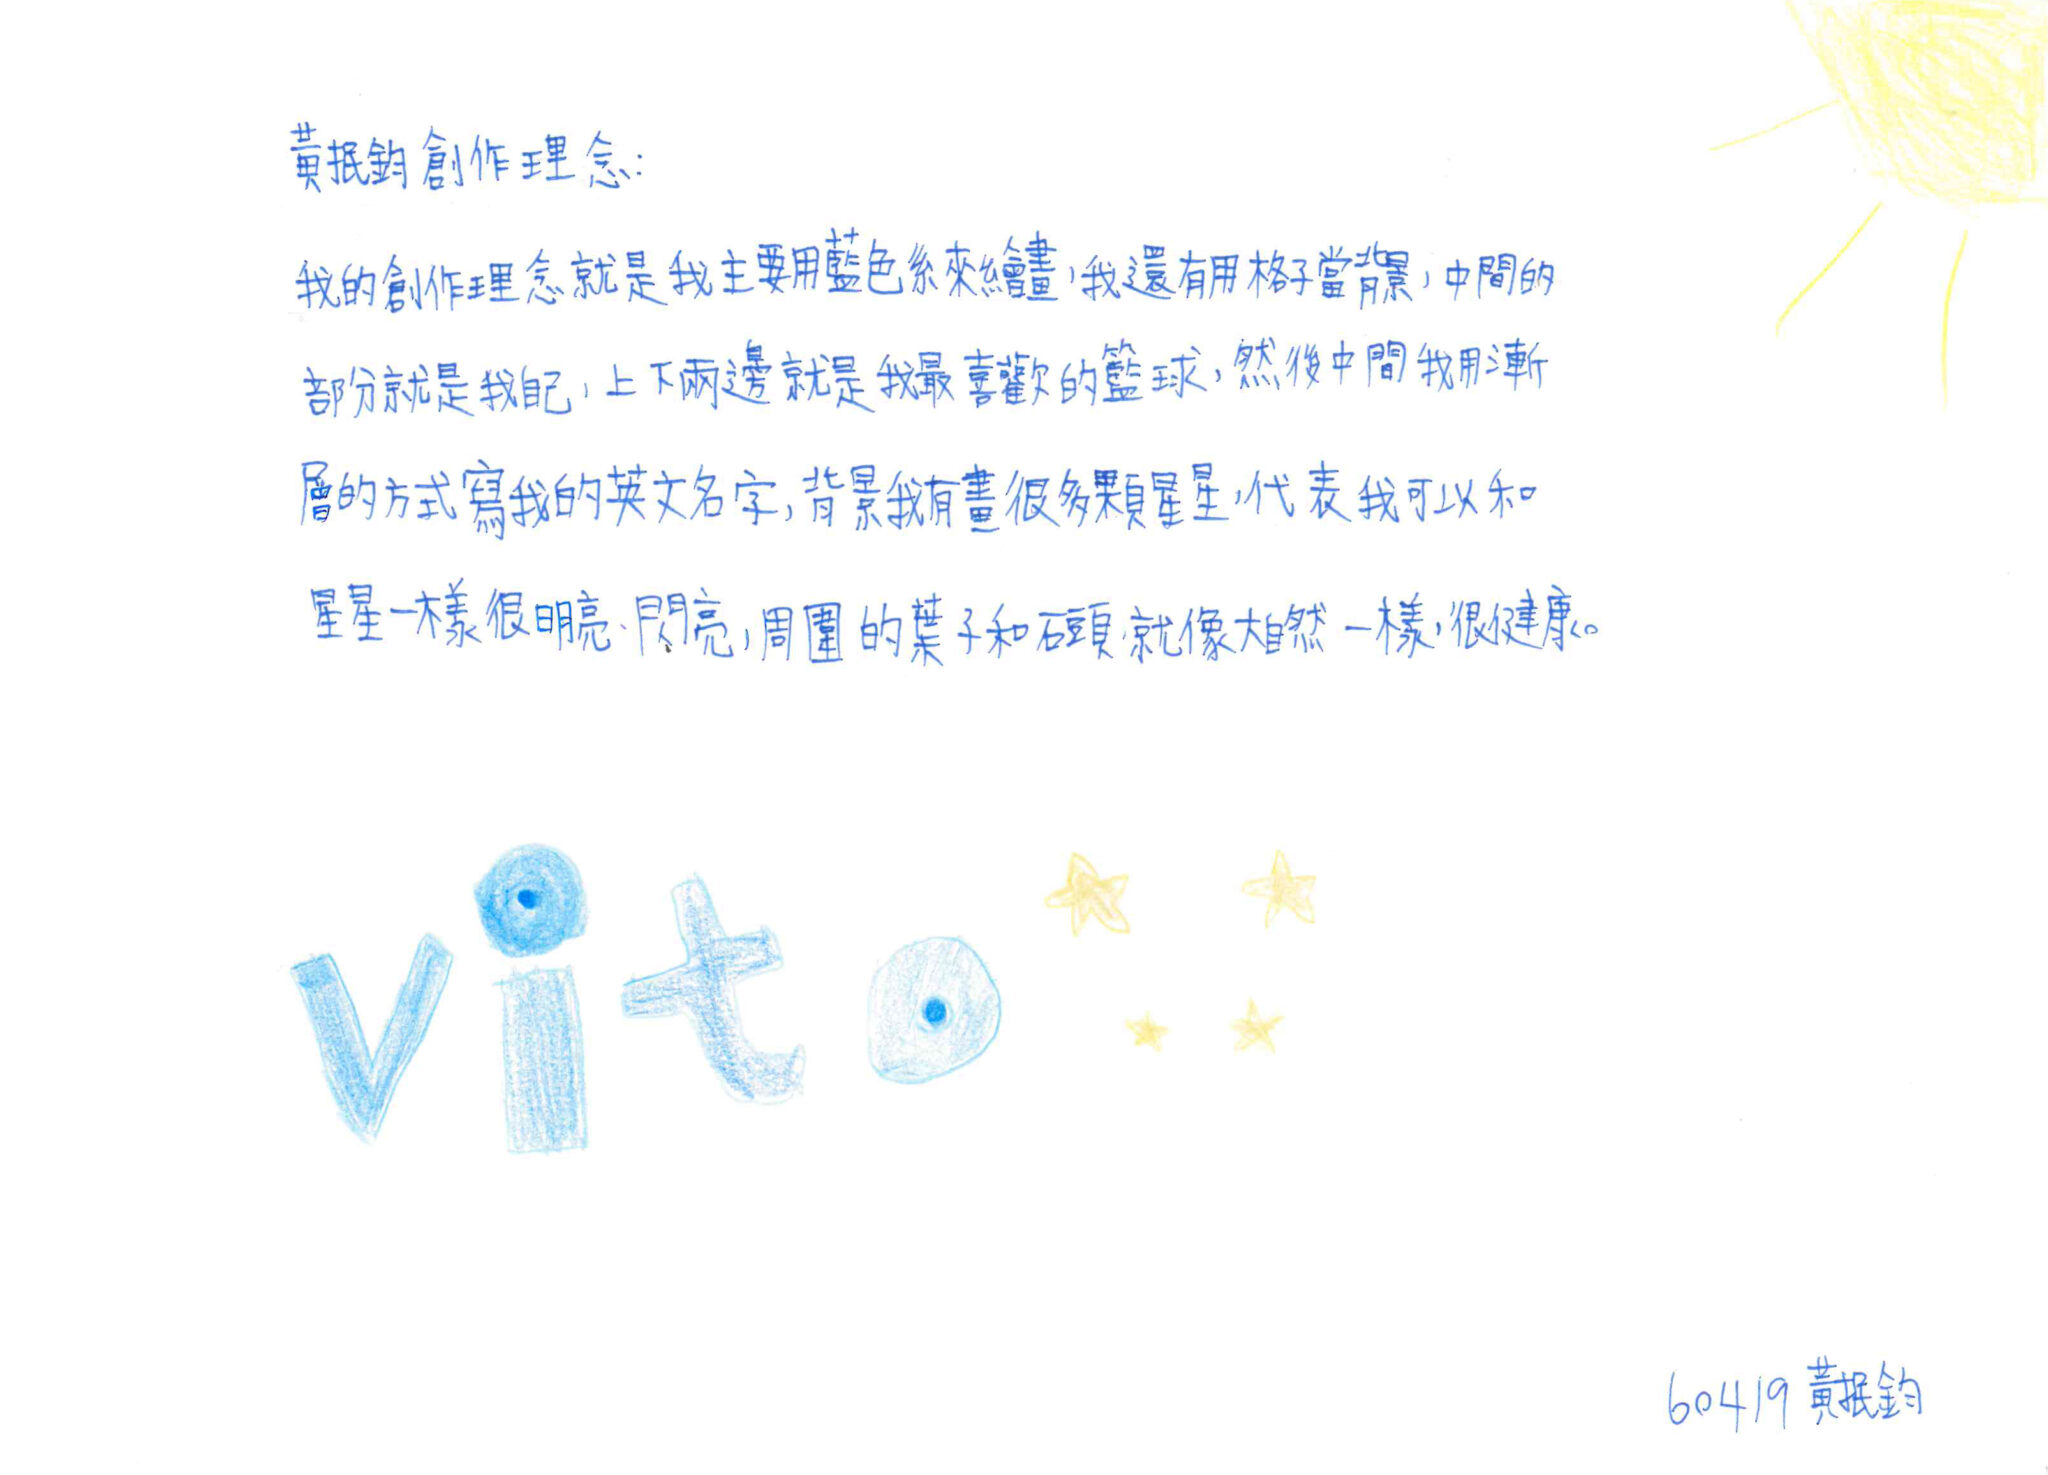 黃抿鈞創作理念:
我的創作理念就是我主要用藍色系來繪畫,我還有用格子當背景,中間的
部分就是我自己,上下兩邊就是我最喜歡的籃球,然後中間我用漸
層的方式寫我的英文名字,背景我有畫很多顆星星,代表我可以和
星星一樣很明亮、閃亮,周圍的葉子和石頭就像大自然一樣,很健康。
vito
60419 黃抿鈞